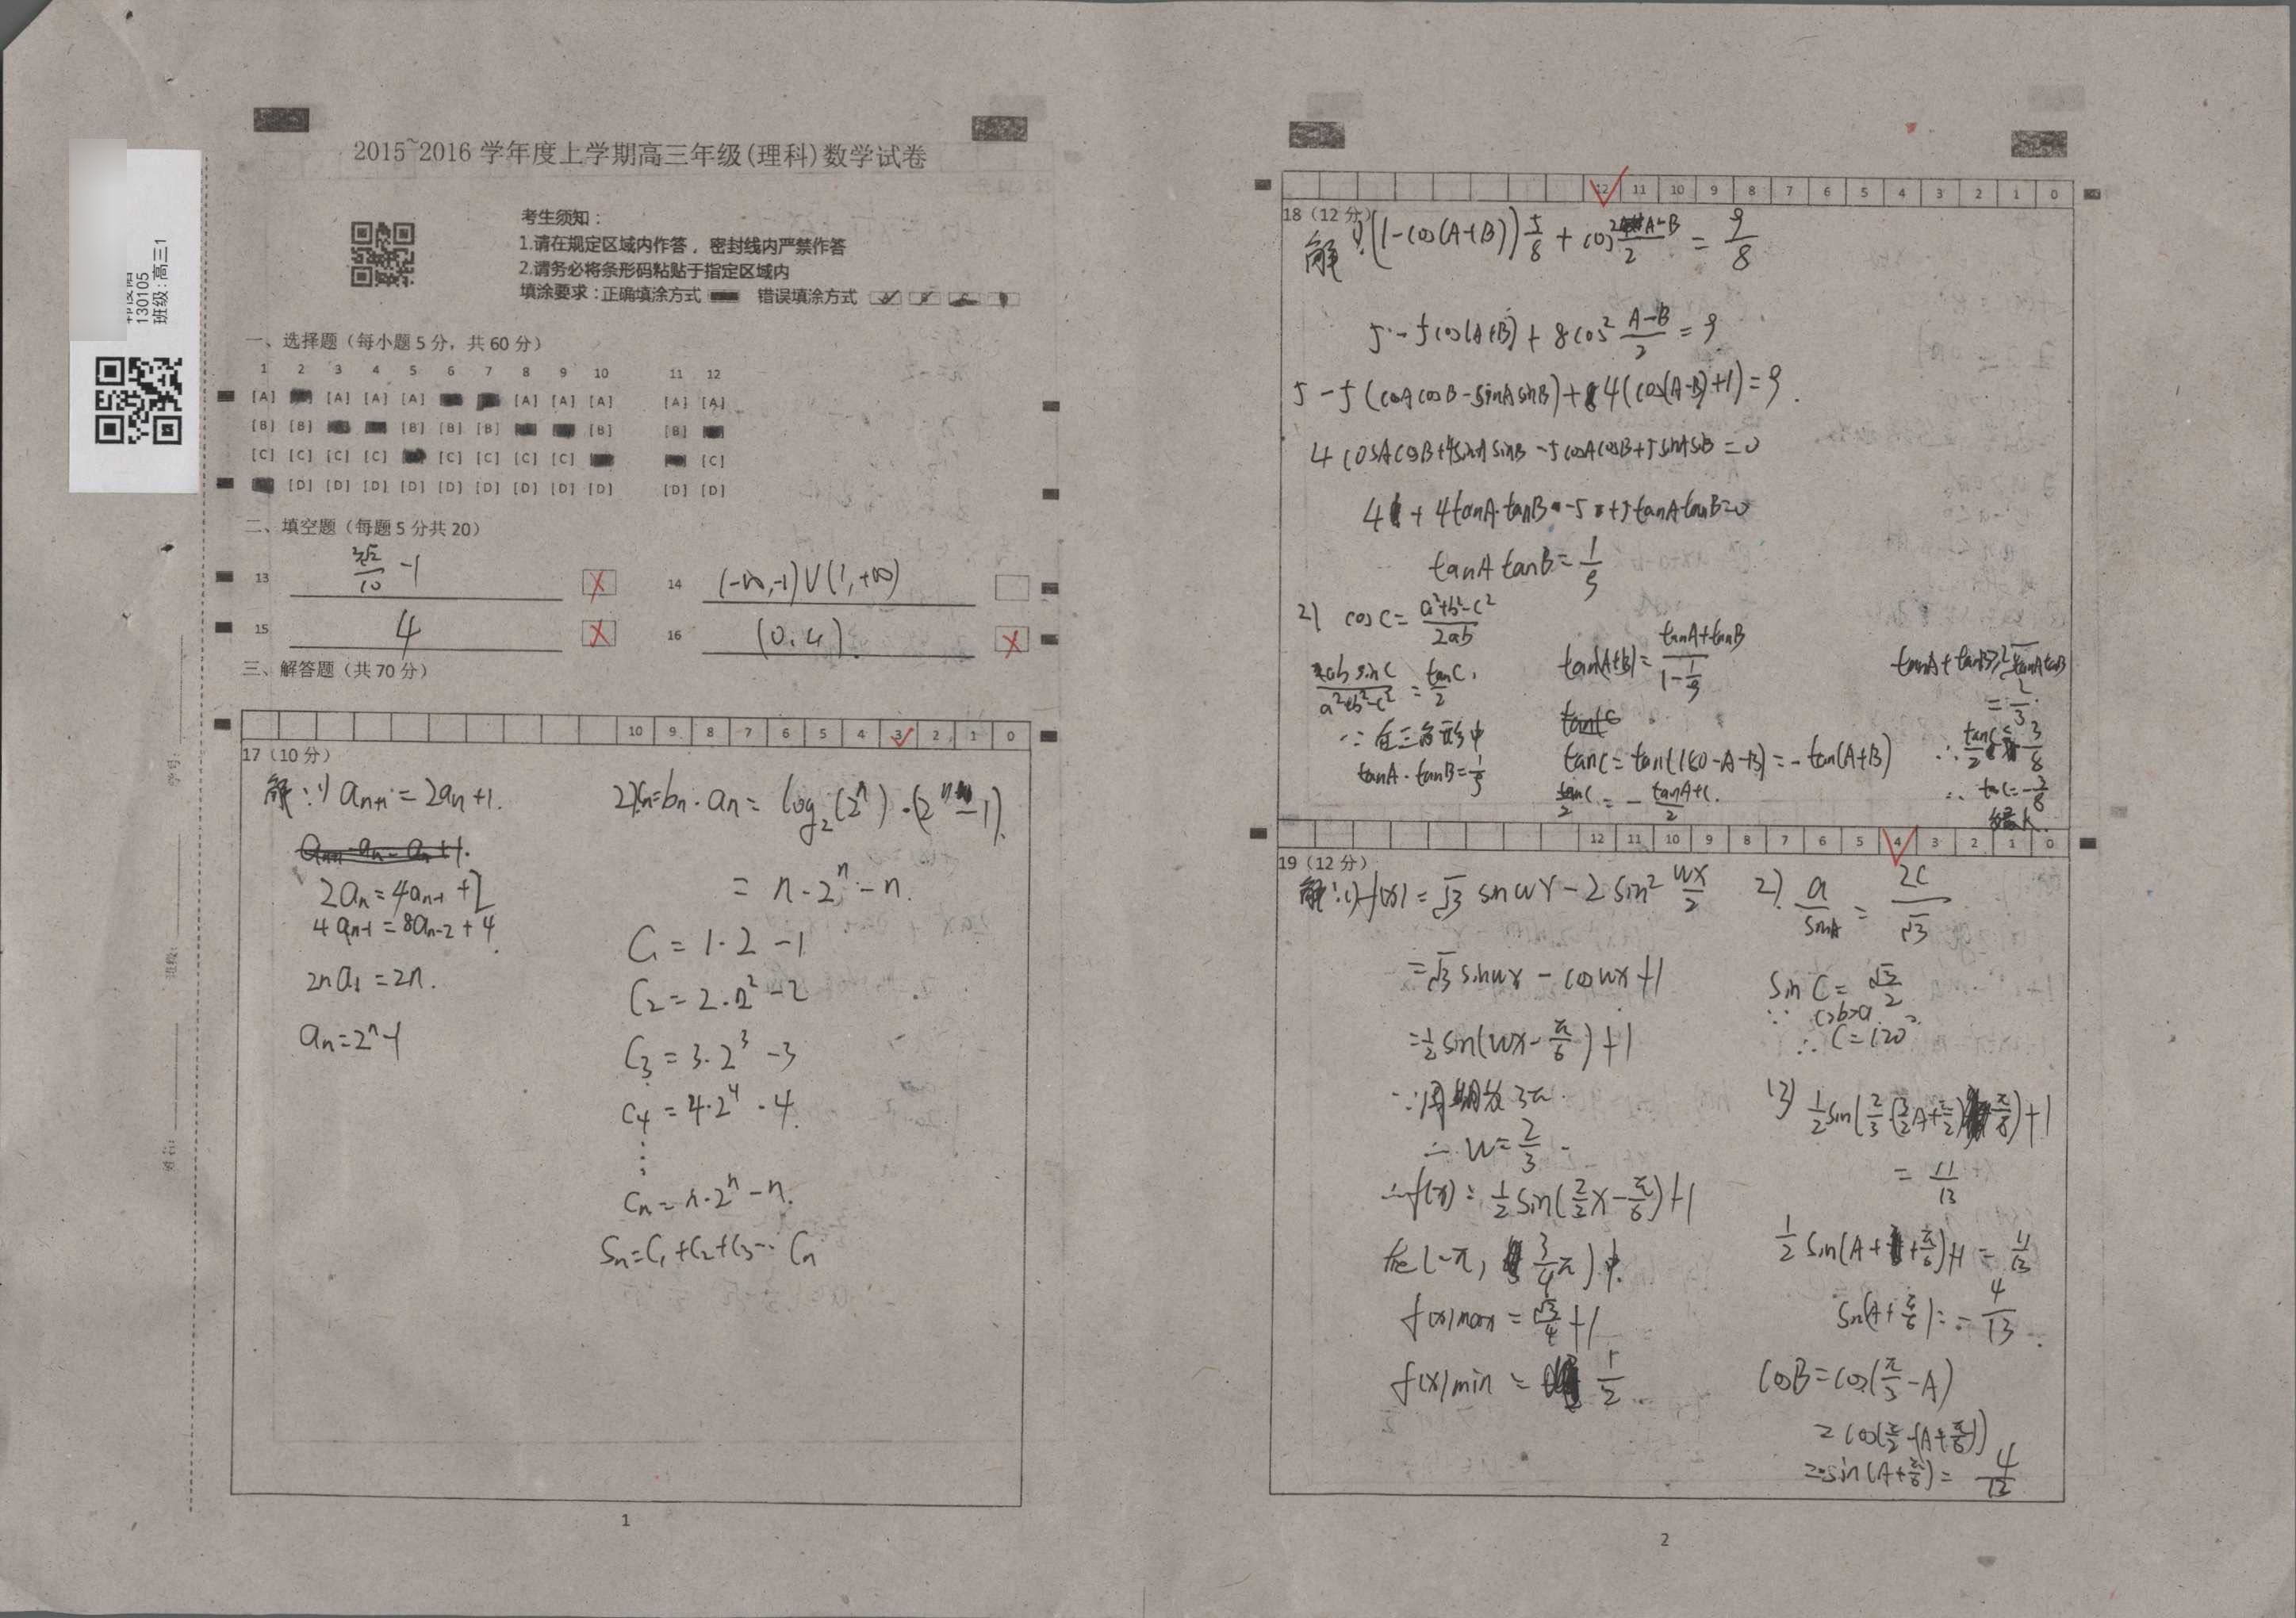 2015~2016 学年度上学期高三年级(理科)数学试卷
130105
班级:高三1
考生须知：
1.请在规定区域内作答，密封线内严禁作答
2.请务必将条形码粘贴于指定区域内
填涂要求：正确填涂方式 错误填涂方式
一、选择题（每小题5分，共60分）
1 2 3 4 5 6 7 8 9 10 11 12
[A] [A] [A] [A] [A] [A] [A] [A] [A]
[B] [B] [B] [B] [B] [B] [B]
[C] [C] [C] [C] [C] [C] [C] [C] [C]
[D] [D] [D] [D] [D] [D] [D] [D] [D] [D] [D]
二、填空题（每题5分共20）
13 3√2/10 -1 14 (-∞,-1)∪(1,+∞)
15 4 16 (0.4).
三、解答题（共70分）
10 9 8 7 6 5 4 3 2 1 0
17（10分）
解:1) aₙ₊₁=2aₙ+1.
2aₙ=4aₙ₋₁+2
4aₙ₋₁=8aₙ₋₂+4
2na₁=2n.
aₙ=2ⁿ-1
2) cₙ=bₙ·aₙ=log₂(2ⁿ)·(2ⁿ-1).
=n·2ⁿ-n.
C₁=1·2-1
C₂=2·2²-2
C₃=3·2³-3
C₄=4·2⁴-4
⋮
Cₙ=n·2ⁿ-n.
Sₙ=C₁+C₂+C₃…Cₙ
1
12 11 10 9 8 7 6 5 4 3 2 1 0
18（12分）
解 1) (1-cos(A+B))5/8+cos²(A-B)/2=9/8
5-5cos(A+B)+8cos²(A-B)/2=9
5-5(cosAcosB-sinAsinB)+4(cos(A-B)+1)=9.
4cosAcosB+4sinAsinB-5cosAcosB+5sinAsinB=0
4+4tanA·tanB-5+5tanAtanB=0
tanAtanB=1/9
2) cosC=(a²+b²-c²)/2ab
absinC/(a²+b²-c²)=tanC/2.
∵在三角形中
tanA·tanB=1/9
tan(A+B)=(tanA+tanB)/(1-1/9)
tanC=tan(180-A-B)=-tan(A+B)
tanA+tanB≥2√tanAtanB
=2/3.
∴tanC=-3/8
最大.
12 11 10 9 8 7 6 5 4 3 2 1 0
19（12分）
解:(1) f(x)=√3sinωx-2sin²ωx/2
=√3sinωx-cosωx+1
=1/2sin(ωx-π/6)+1
∵周期为3π.
∴ω=2/3
∴f(x)=1/2sin(2/3x-π/6)+1
在(-π,3/4π)中.
f(x)max=√3/4+1
f(x)min=1/2
2). a/sinA=2c/√3
sinC=√3/2
∵c>b>a
∴C=120°
(3) 1/2sin(2/3(3/2A+π/2)-π/6)+1
=11/13
1/2sin(A+π/6)+1=11/13
sin(A+π/6)=-4/13.
cosB=cos(π/3-A)
=cos(π/2-(A+π/6))
=sin(A+π/6)=4/13
2